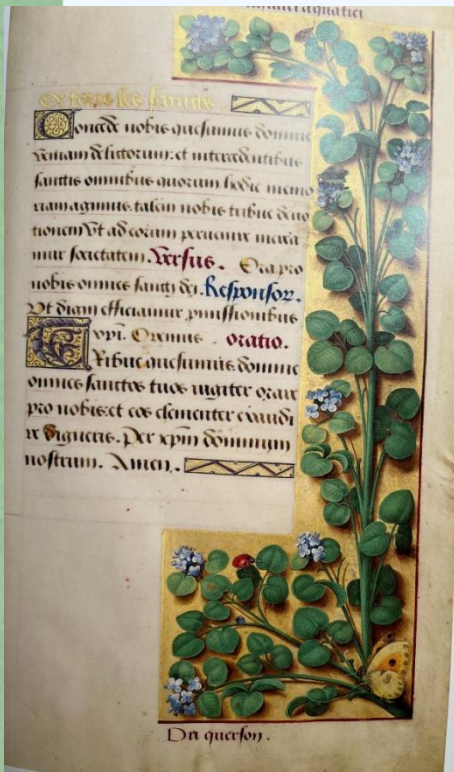 aquatici
De tous les saincts
Concede nobis quesumus domine
veniam delictorum: et intercedentibus
sanctis omnibus quorum hodie memo
riam agimus. talem nobis tribue deuo
tionem Vt ad eorum peruenire merea
mur societatem. Versus. Ora pro
nobis omnes sancti dei. Responsor.
Vt digni efficiamur promissionibus
xpi. Oremus. oratio.
Tribue quesumus domine
omnes sanctos tuos iugiter orare
pro nobis: et eos clementer exaudi
re digneris. Per xpm dominum
nostrum. Amen.
Du querson.